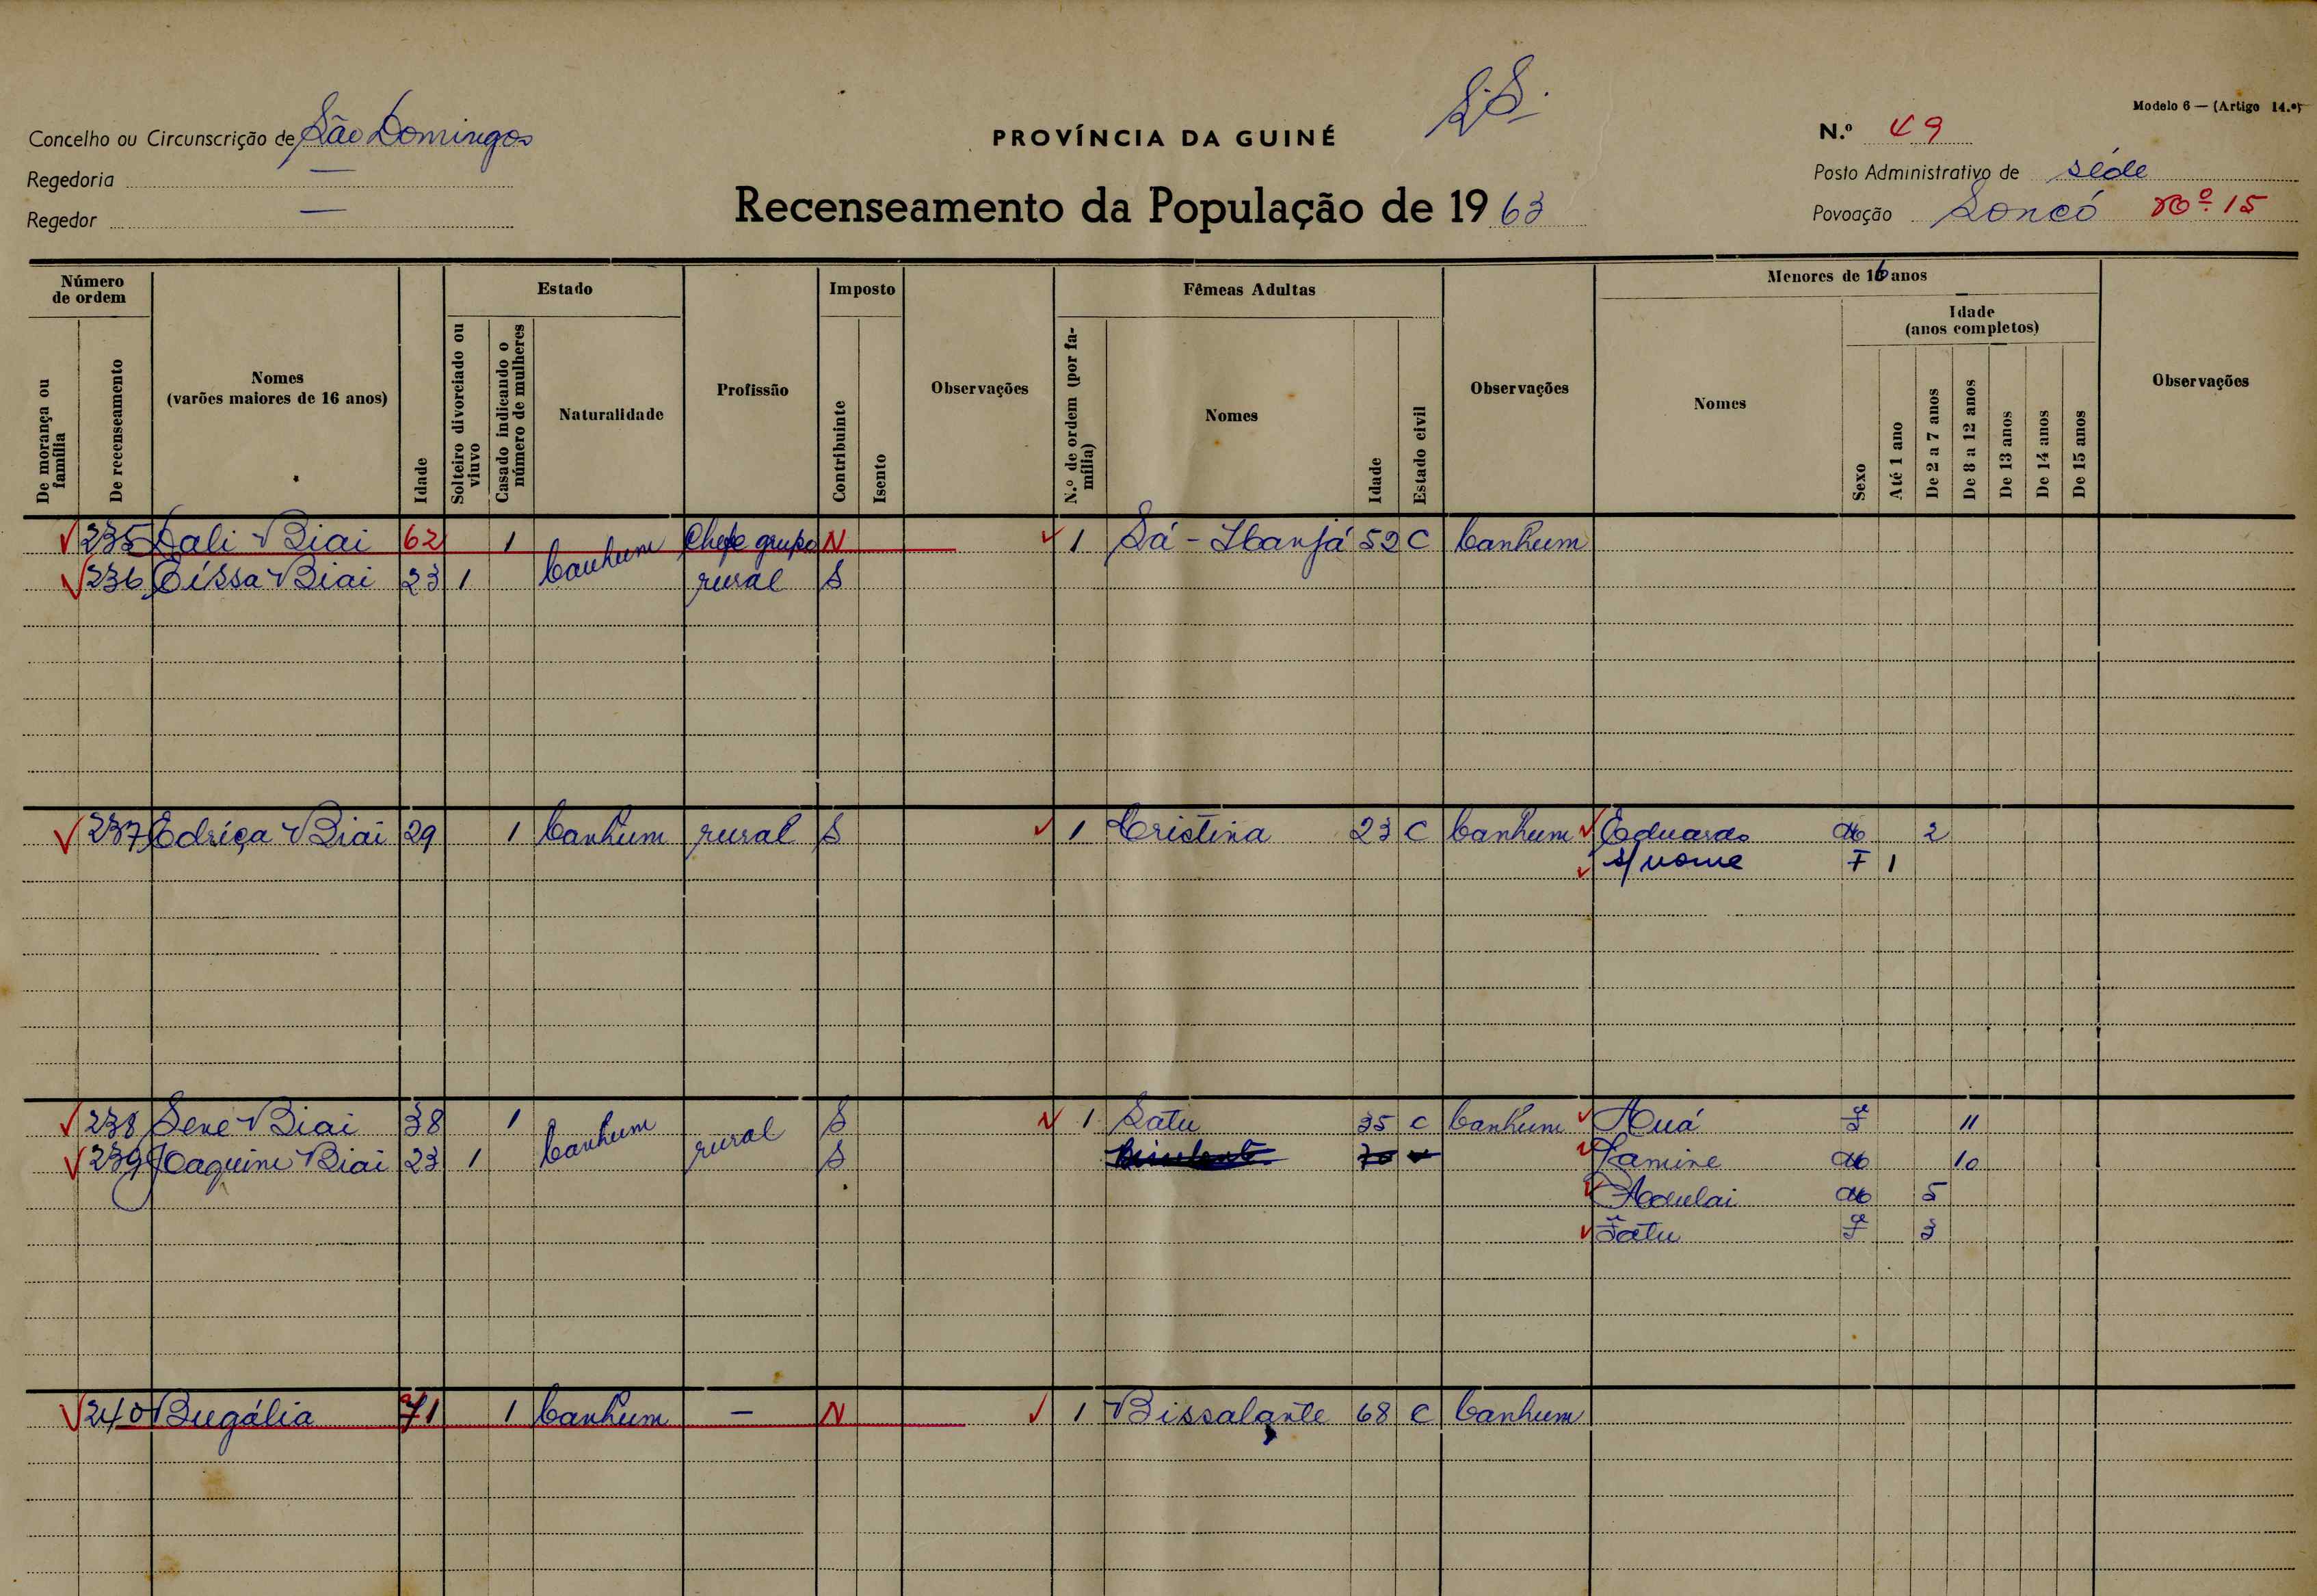 S.S.
Modelo 6 — (Artigo 14.º)
Concelho ou Circunscrição de São Domingos
PROVÍNCIA DA GUINÉ
N.º 49
Regedoria —
Posto Administrativo de séde
Regedor —
Recenseamento da População de 1963
Povoação Soncó Nº 15
Número de ordem
De morança ou família
De recenseamento
Nomes
(varões maiores de 16 anos)
Idade
Estado
Solteiro divorciado ou viuvo
Casado indicando o número de mulheres
Naturalidade
Profissão
Imposto
Contribuinte
Isento
Observações
Fêmeas Adultas
N.º de ordem (por família)
Nomes
Idade
Estado civil
Observações
Menores de 16 anos
Nomes
Sexo
Idade
(anos completos)
Até 1 ano
De 2 a 7 anos
De 8 a 12 anos
De 13 anos
De 14 anos
De 15 anos
Observações
235 Lali Biai 62 1 Banhum Chefe grupo N 1 Sá - 52 C Banhum
236 Eissa Biai 23 1 rural S
237 Edriça Biai 29 1 Banhum rural S 1 Cristina 23 C Banhum Eduardo M 2
s/nome F 1
238 Sene Biai 38 1 Banhum rural S 1 Satu 35 C Banhum Auá F 11
239 Joaquim Biai 23 1 S 70 Lamine M 10
Adulai M 5
Fatu F 3
240 Bugália 71 1 Banhum — N 1 Bissalante 68 C Banhum